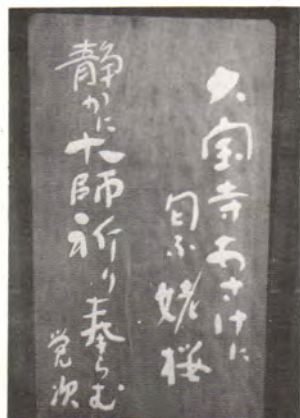 大宝寺あさけに
匂ふ姥桜
静かに大師祈り奉らむ
覚次